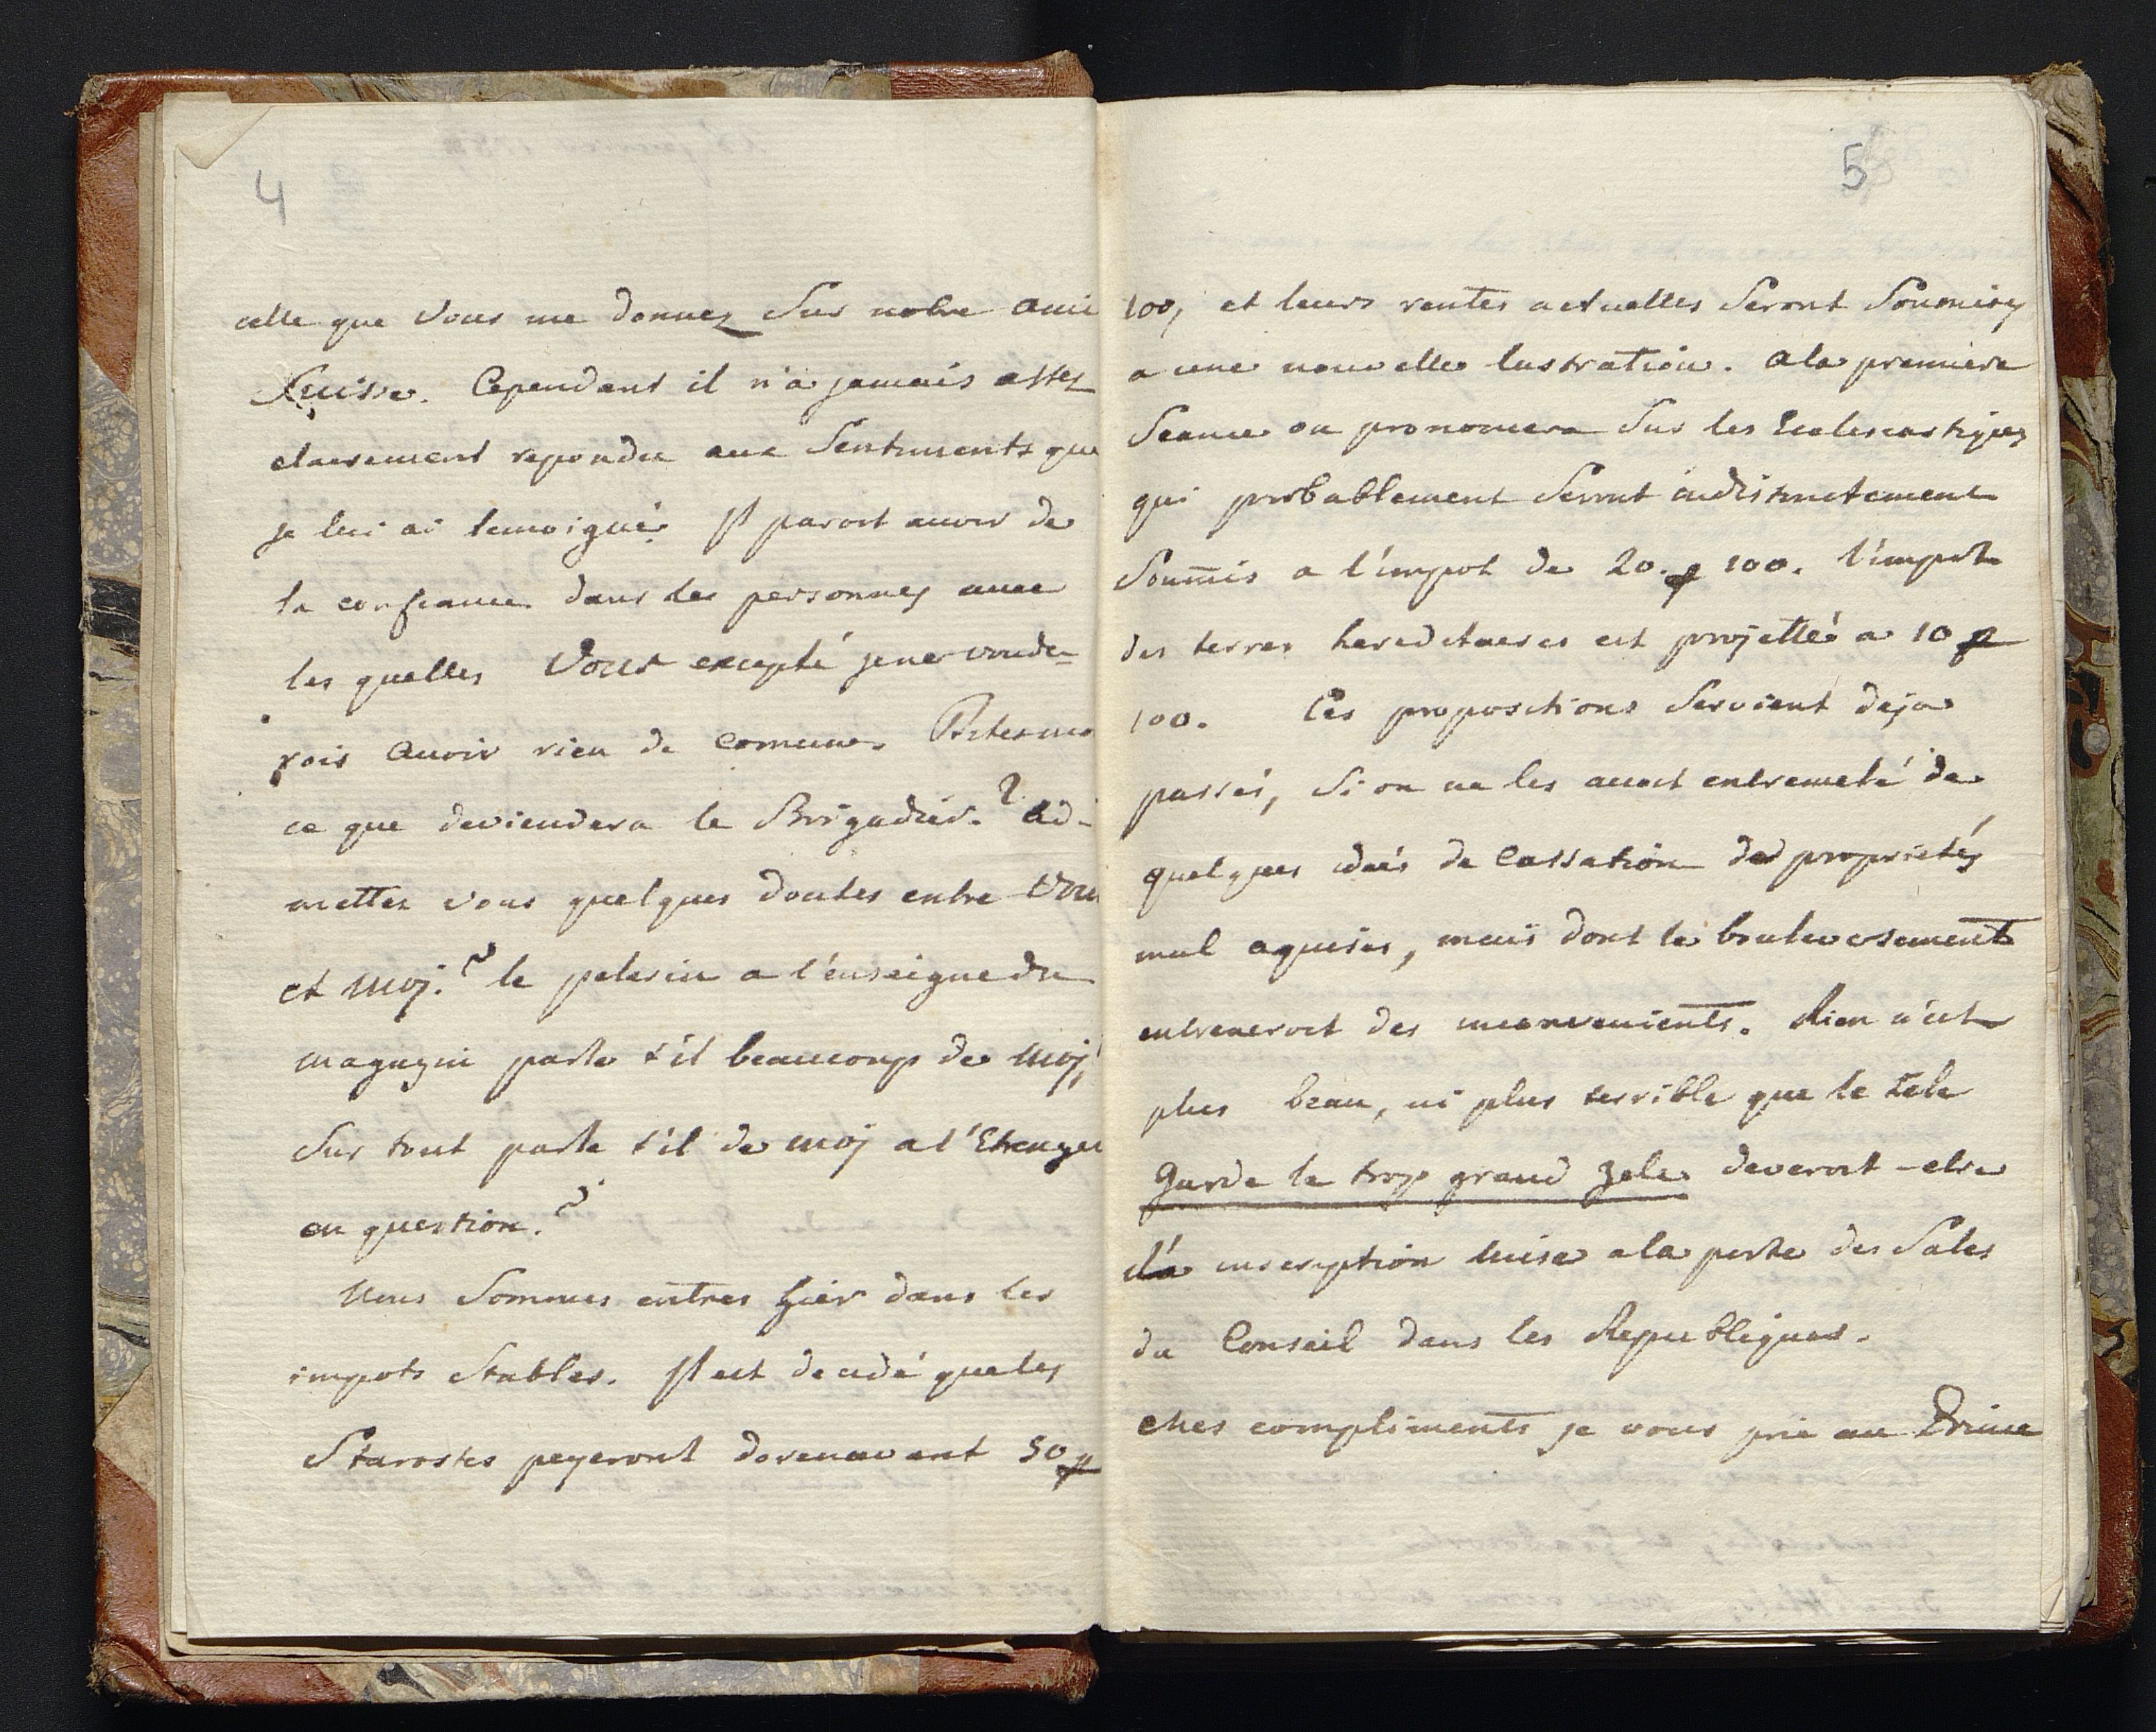 4
celle que Vous me donnez Sur notre ami
Suisse. Cependant il n'a jamais assez
clairement repondu aux Sentiments que
je lui ai temoigné. Il paroit avoir de
la confiance dans les personnes avec
les quelles Vous excepté je ne voude=
rois avoir rien de comun. Dites moi
ce que deviendera le Brigadier? Ad-
mettez Vous quelques doutes entre Vous
et moj? le pelerin a l'enseigne du
magazin parle t'il beaucoup de moj,
Sur tout parle t'il de moj a l'Etranger
en question?
Nous Sommes entres hier dans les
impots Stables. Il est decidé que les
Starostes peyeront dorenavant 50 p
5
100, et leurs rentes actuelles Seront Soumises
a une nouvelle lustration. a la premiere
Seance on prononcera Sur les Eclesiastiques
qui probablement Seront indistinctement
Soumis a l'impot de 20. p 100. l'impot
des terres hereditaires est projetté a 10 p
100. Ces propositions Seroient deja
passés, Si on ne les avoit entremelé de
quelques ideés de Cassation des proprietés
mal aquises, mais dont le bouleversement
entreneroit des inconvenients. Rien n'est
plus beau, ni plus terrible que le zele
Garde le trop grand Zele deveroit-etre
l'a inscription mise a la porte des Sales
du Conseil dans les Republiques.
Mes compliments je vous prie au Prince